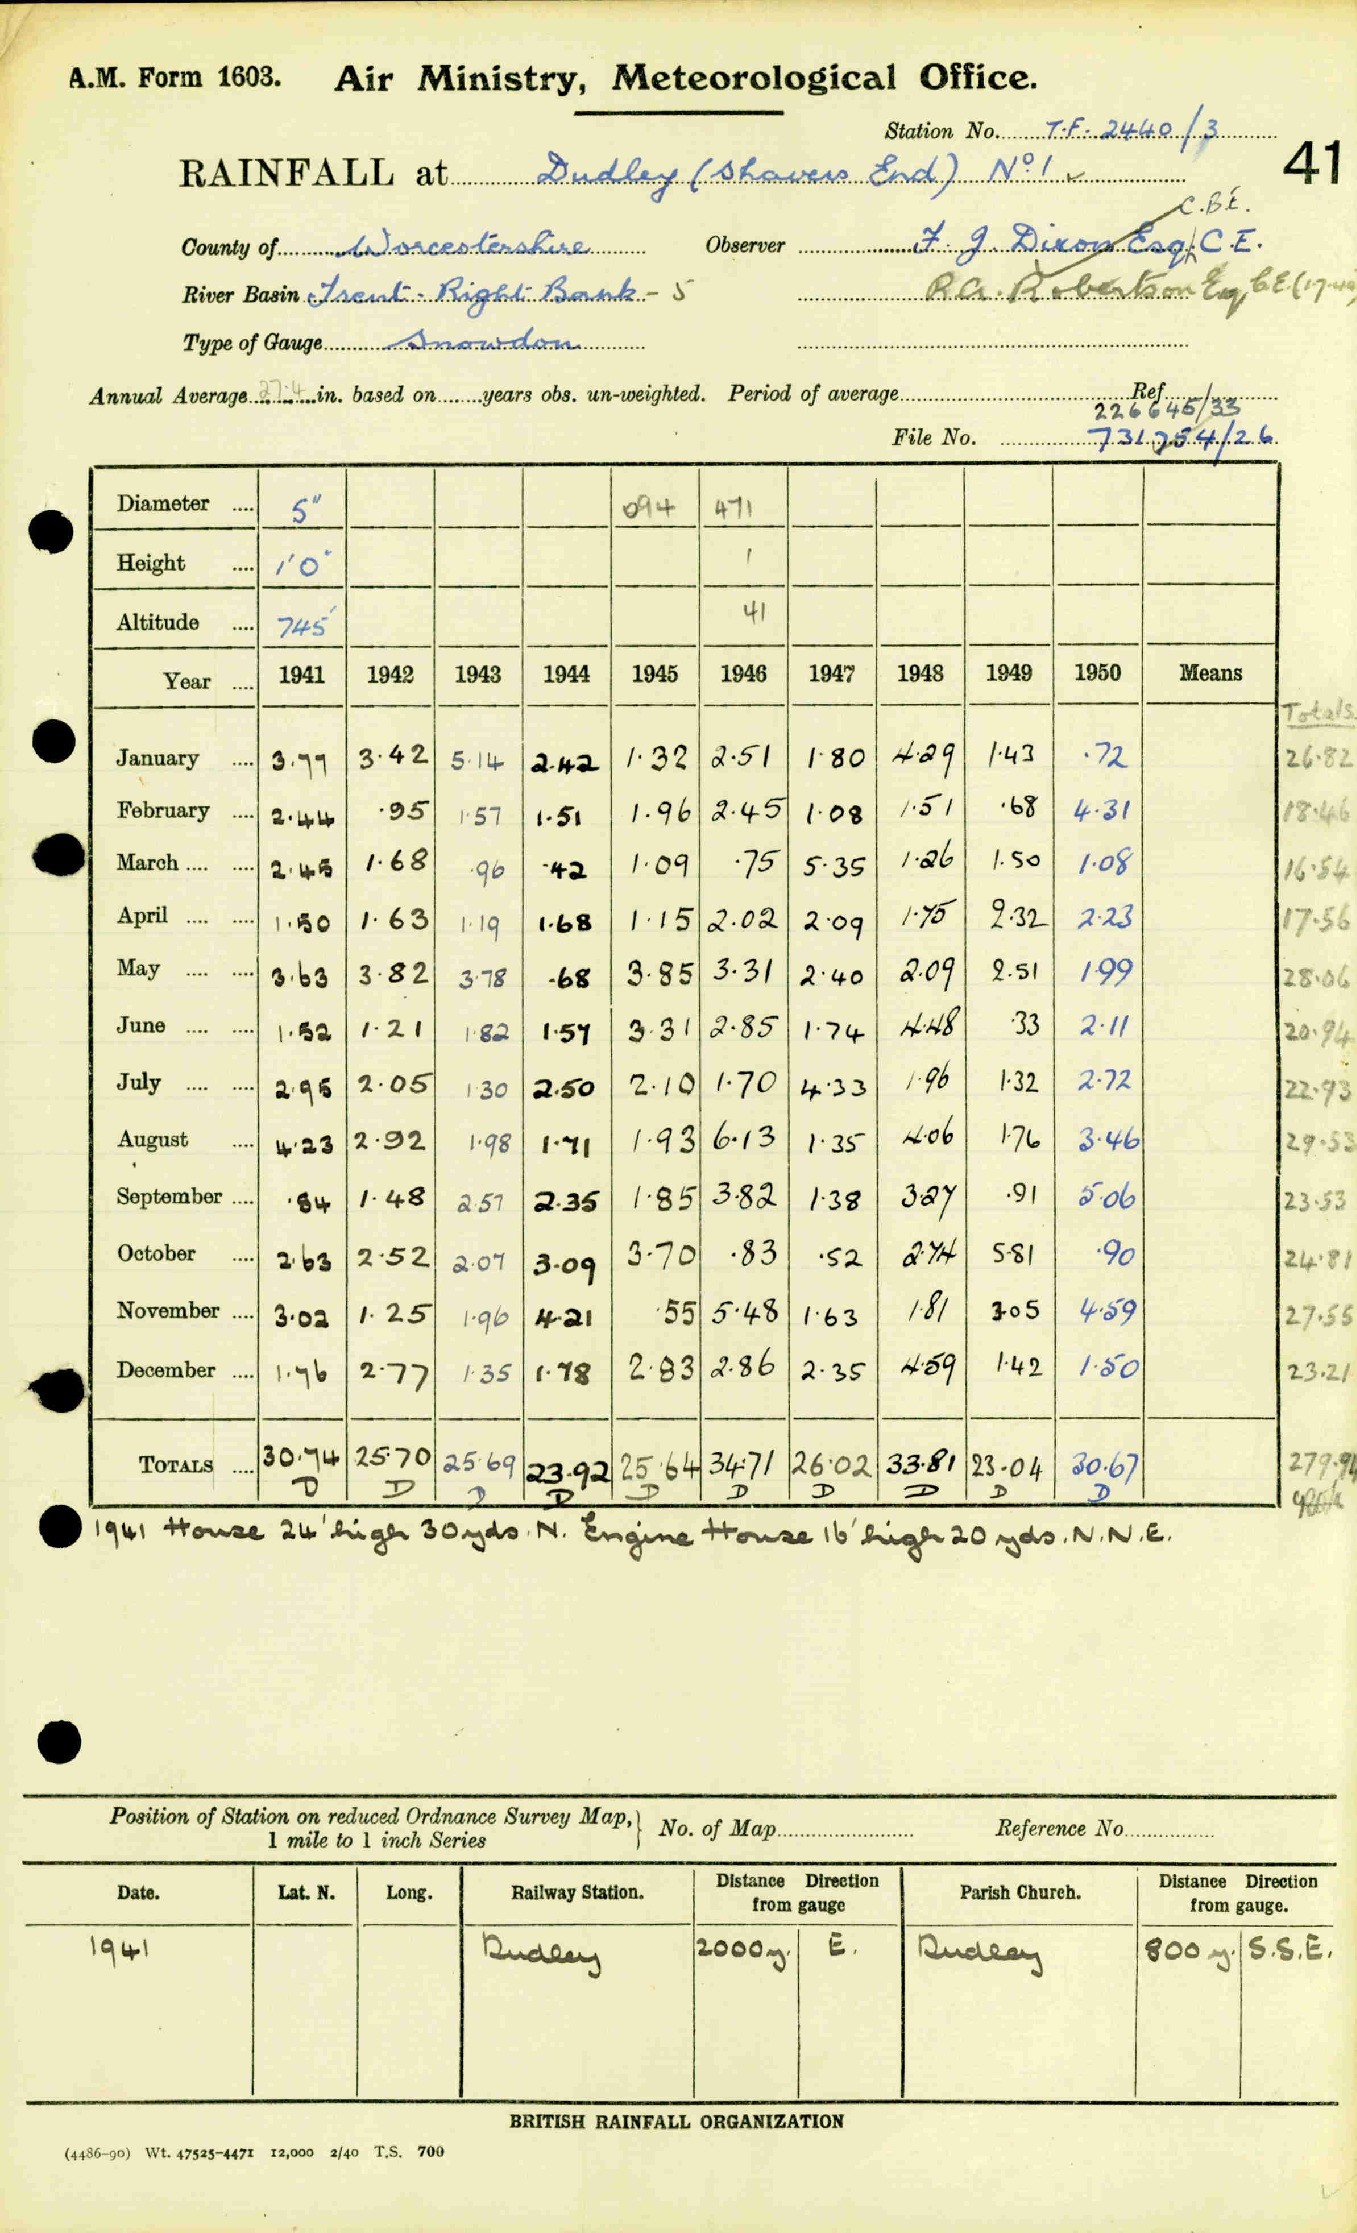 A.M. Form 1603. Air Ministry, Meteorological Office.
Station No. T.F. 2440/3
41
RAINFALL at Dudley (Shavers End) No. 1 ✓
C.B.E.
County of Worcestershire Observer F. J. Dixon Esq., C.E.
River Basin Trent - Right Bank - 5 R.A. Robertson Esq, C.E.
Type of Gauge Snowdon
Annual Average 27.4 in. based on years obs. un-weighted. Period of average Ref.
226645/33
File No. 731754/26
Diameter 5" 094 471
Height 1'0" 1
Altitude 745' 41
Year 1941 1942 1943 1944 1945 1946 1947 1948 1949 1950 Means
Totals
January 3.77 3.42 5.14 2.42 1.32 2.51 1.80 4.29 1.43 .72 26.82
February 2.44 .95 1.57 1.51 1.96 2.45 1.08 1.51 .68 4.31 18.46
March 2.45 1.68 .96 .42 1.09 .75 5.35 1.26 1.50 1.08 16.54
April 1.50 1.63 1.19 1.68 1.15 2.02 2.09 1.75 2.32 2.23 17.56
May 3.63 3.82 3.78 .68 3.85 3.31 2.40 2.09 2.51 1.99 28.06
June 1.52 1.21 1.82 1.57 3.31 2.85 1.74 4.48 .33 2.11 20.94
July 2.95 2.05 1.30 2.50 2.10 1.70 4.33 1.96 1.32 2.72 22.93
August 4.23 2.92 1.98 1.71 1.93 6.13 1.35 4.06 1.76 3.46 29.53
September .84 1.48 2.57 2.35 1.85 3.82 1.38 3.27 .91 5.06 23.53
October 2.63 2.52 2.07 3.09 3.70 .83 .52 2.74 5.81 .90 24.81
November 3.02 1.25 1.96 4.21 .55 5.48 1.63 1.81 3.05 4.59 27.55
December 1.76 2.77 1.35 1.78 2.83 2.86 2.35 4.59 1.42 1.50 23.21
TOTALS 30.74 25.70 25.69 23.92 25.64 34.71 26.02 33.81 23.04 30.67 279.94
D D D D D D D D D D
1941 House 24' high 30 yds. N. Engine House 16' high 20 yds. N.N.E.
Position of Station on reduced Ordnance Survey Map, 1 mile to 1 inch Series } No. of Map Reference No.
Date. Lat. N. Long. Railway Station. Distance from gauge Direction Parish Church. Distance from gauge. Direction
1941 Dudley 2000 y. E. Dudley 800 y. S.S.E.
BRITISH RAINFALL ORGANIZATION
(4486-90) Wt. 47525-4471 12,000 2/40 T.S. 700